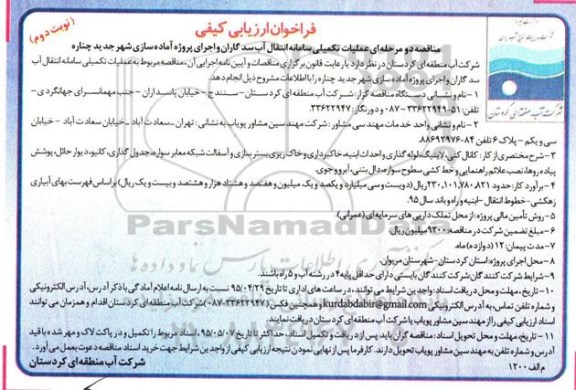 (نوبت دوم)
فراخوان ارزیابی کیفی
مناقصه دو مرحله ای عملیات تکمیلی سامانه انتقال آب سد گاران و اجرای پروژه آماده سازی شهر جدید چناره
شرکت آب منطقه ای کردستان
شرکت آب منطقه ای کردستان در نظر دارد با رعایت قانون برگزاری مناقصات و آیین نامه اجرایی آن، مناقصه مربوط به عملیات تکمیلی سامانه انتقال آب
سد گاران و اجرای پروژه آماده سازی شهر جدید چناره را با اطلاعات مشروح ذیل انجام دهد.
۱- نام و نشانی دستگاه مناقصه گزار: شرکت آب منطقه ای کردستان - سنندج - خیابان پاسداران - جنب مهمانسرای جهانگردی -
تلفن: ۵۱-۳۳۶۲۲۹۴۹-۰۸۷ و دورنگار ۳۳۶۲۲۹۴۷
۲- نام و نشانی واحد خدمات مهندسی مشاور: شرکت مهندسین مشاور پویاب به نشانی: تهران - سعادت آباد - خیابان سعادت آباد - خیابان
سی و یکم - پلاک ۶ تلفن ۸۴-۸۸۶۹۲۹۷۶
۳- شرح مختصری از کار: کانال کنی، لاینینگ، لوله گذاری و احداث ابنیه، خاکبرداری و خاک ریزی بستر سازی و آسفالت شبکه معابر سواره، جدول گذاری، کانیو، دیوار حائل، پوشش
پیاده روها، نصب علائم راهنمایی و خط کشی سطوح سواره، دال بتنی، آبرو و جوی.
۴- برآورد کار: حدود ۲۳۰,۱۰۱,۷۸۰,۸۲۱ ریال (دویست و سی میلیارد و یکصد و یک میلیون و هفتصد و هشتاد هزار و هشتصد و بیست و یک ریال) براساس فهرست بهای آبیاری
زهکشی - خطوط انتقال - ابنیه و راه و باند سال ۹۵.
۵- روش تأمین مالی پروژه: از محل تملک دارایی های سرمایه ای (عمرانی).
۶- مبلغ تضمین شرکت در مناقصه: ۹۳۰۰ میلیون ریال.
۷- مدت پیمان: ۱۲ (دوازده) ماه.
۸- محل اجرای پروژه: استان کردستان - شهرستان مریوان.
۹- شرایط شرکت کنندگان: شرکت کنندگان بایستی دارای حداقل پایه ۴ در رشته آب و ۵ راه باشند.
۱۰- تاریخ، مهلت و محل دریافت اسناد: واجدین شرایط می توانند، در ساعت های اداری تا تاریخ ۹۵/۰۴/۲۹ نسبت به ارسال نامه اعلام آمادگی با ذکر آدرس، آدرس الکترونیکی
و شماره تلفن تماس، به آدرس الکترونیکی kurdabdabir@gmail.com و همچنین فکس (۳۳۶۲۲۹۴۷-۰۸۷) شرکت آب منطقه ای کردستان اقدام و همزمان می توانند
اسناد ارزیابی کیفی را از مهندسین مشاور پویاب یا شرکت آب منطقه ای کردستان دریافت نمایند.
۱۱- تاریخ، مهلت و محل تحویل اسناد: مناقصه گران باید پس از دریافت و تکمیل اسناد، حداکثر تا تاریخ ۹۵/۰۵/۰۷ اسناد مربوط را تکمیل و در پاکت لاک و مهر شده با قید
آدرس و شماره تلفن به مهندسین مشاور پویاب تحویل دارند. کارفرما پس از نهایی نمودن نتیجه ارزیابی کیفی از واجدین شرایط جهت خرید اسناد مناقصه دعوت بعمل می آورد.
م الف ۱۲۰۰
شرکت آب منطقه ای کردستان
ParsNamadData